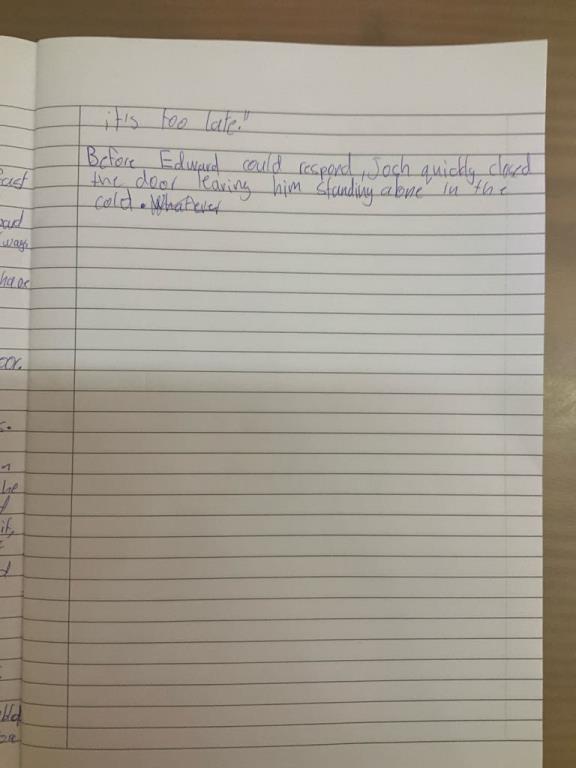 it's too late."
Before Edward could respond, Josh quickly closed
the door leaving him standing alone in the
cold. Whatever
ways
oor.
s.
n
he
it,
d